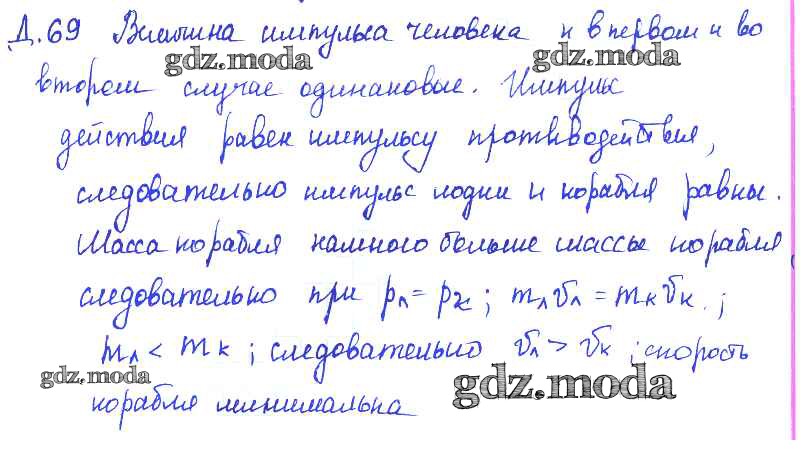 Д.69 Величина импульса человека и в первом и во
gdz.moda gdz.moda
втором случае одинаковые. Импульс
действия равен импульсу противодействия,
следовательно импульс лодки и корабля равны.
Масса корабля намного больше массы корабля,
следовательно при pл = pк; mлvл = mкvк.;
mл < mк; следовательно vл > vк; скорость
gdz.moda gdz.moda
корабля минимальна